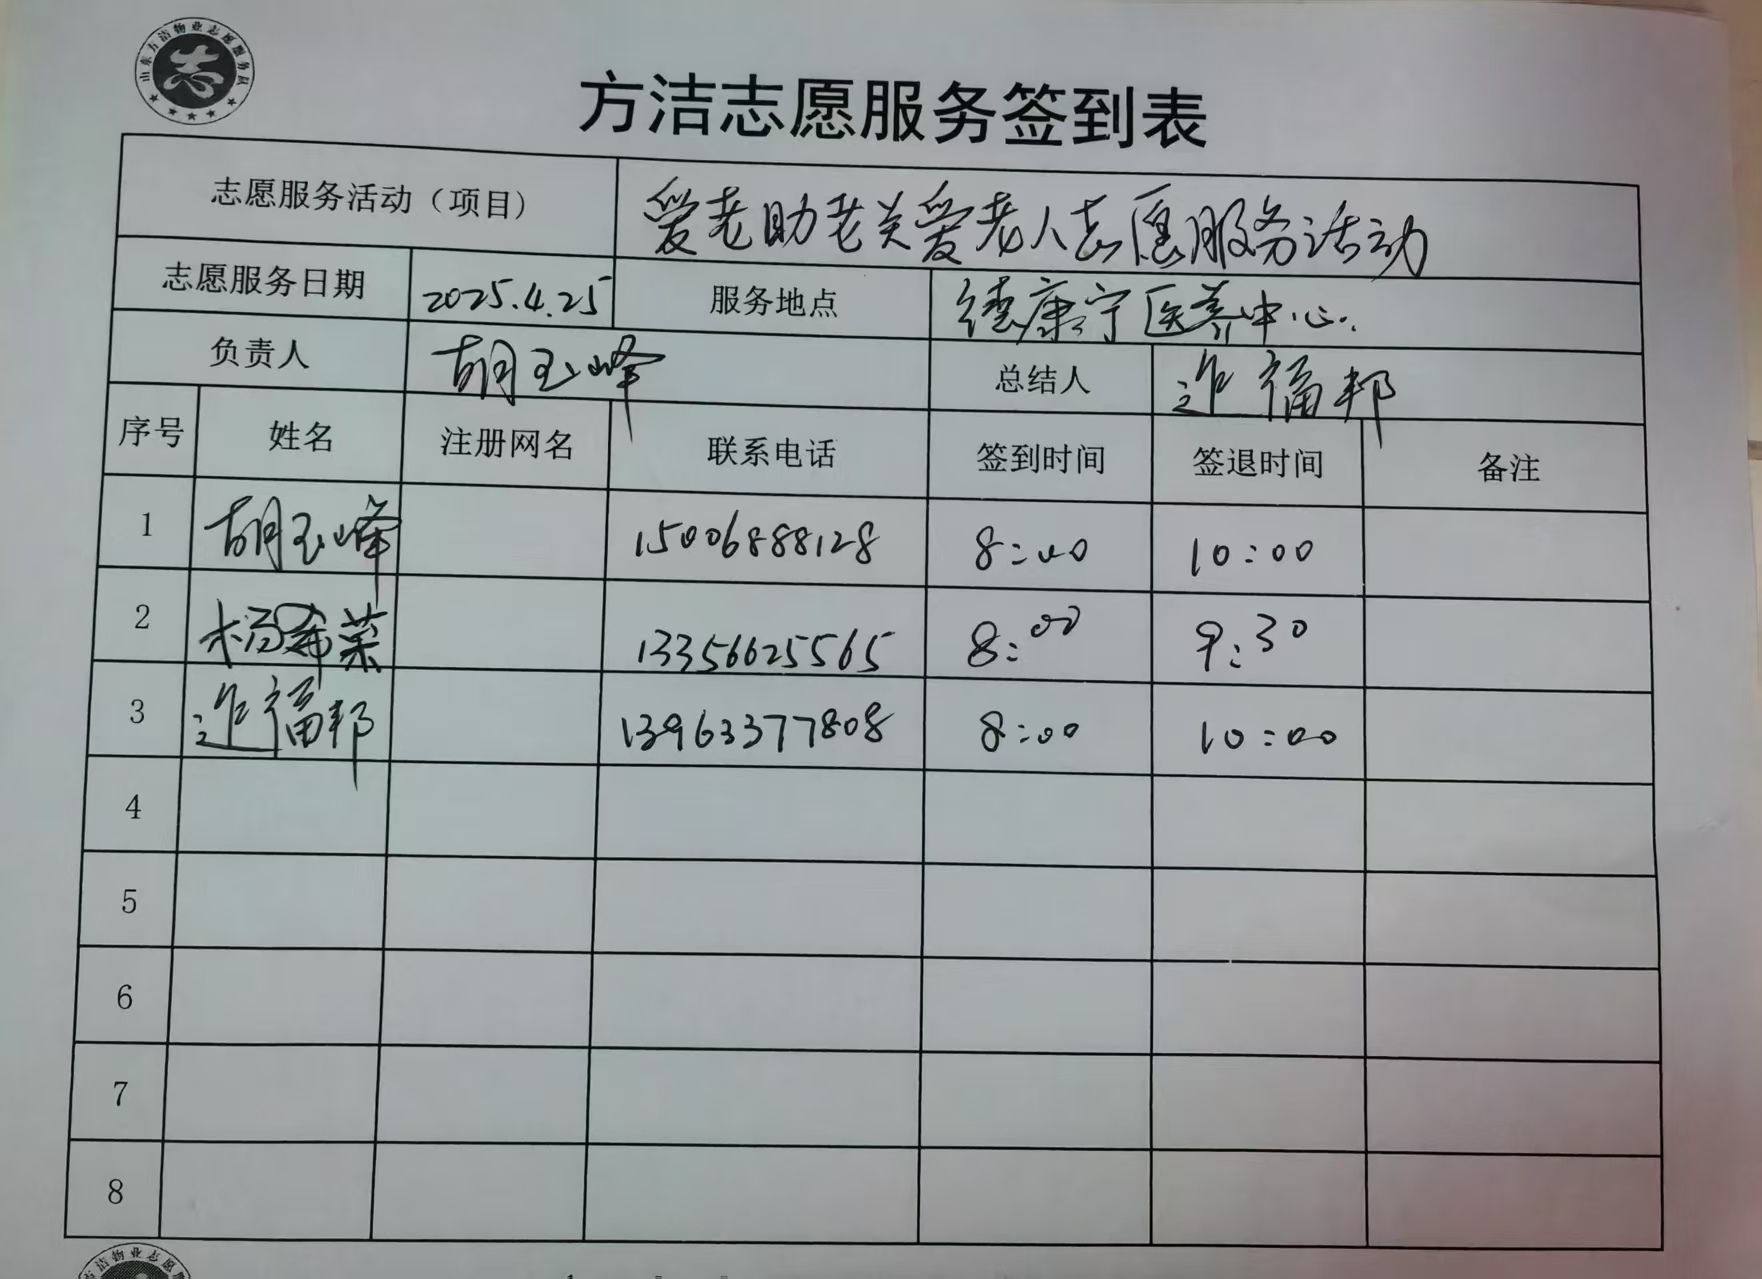 山东方洁物业志愿服务队
志
方洁志愿服务签到表
志愿服务活动（项目） 爱老助老关爱老人志愿服务活动
志愿服务日期 2025.4.25 服务地点 德康宁医养中心.
负责人 胡玉峰 总结人 福邦
序号 姓名 注册网名 联系电话 签到时间 签退时间 备注
1 胡玉峰 15006888128 8:00 10:00
2 杨希荣 13356625565 8:00 9:30
3 福邦 13963377808 8:00 10:00
4
5
6
7
8
方洁物业志愿服